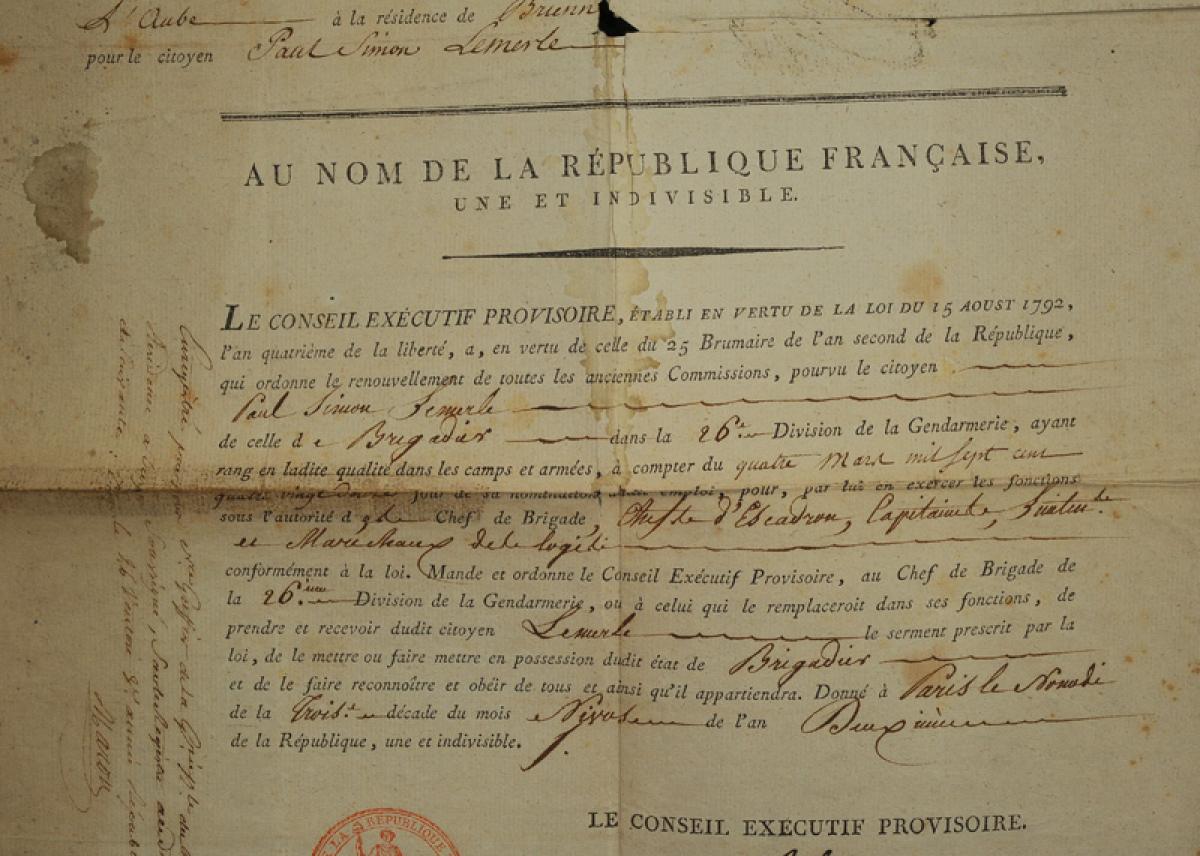 L'Aube à la résidence de Brienn
pour le citoyen Paul Simon Lemerle
AU NOM DE LA RÉPUBLIQUE FRANÇAISE,
UNE ET INDIVISIBLE.
LE CONSEIL EXÉCUTIF PROVISOIRE, ÉTABLI EN VERTU DE LA LOI DU 15 AOUST 1792,
l'an quatrième de la liberté, a, en vertu de celle du 25 Brumaire de l'an second de la République,
qui ordonne le renouvellement de toutes les anciennes Commissions, pourvu le citoyen
Paul Simon Lemerle
de celle de Brigadier dans la 26.e Division de la Gendarmerie, ayant
rang en ladite qualité dans les camps et armées, à compter du quatre Mars mil sept cent
quatre vingt jour de sa nomination audit emploi, pour, par lui en exercer les fonctions
sous l'autorité d Chef de Brigade, Chefs d'Escadron, Capitaine, Lieuten.t
et Marechaux de logis
conformément à la loi. Mande et ordonne le Conseil Exécutif Provisoire, au Chef de Brigade de
la 26.ème Division de la Gendarmerie, ou à celui qui le remplaceroit dans ses fonctions, de
prendre et recevoir dudit citoyen Lemerle le serment prescrit par la
loi, de le mettre ou faire mettre en possession dudit état de Brigadier
et de le faire reconnoître et obéir de tous et ainsi qu'il appartiendra. Donné à Paris le Nonodi
de la Trois.e décade du mois Nivose de l'an Deuxième
de la République, une et indivisible.
LE CONSEIL EXÉCUTIF PROVISOIRE.
DE LA RÉPUBLIQUE